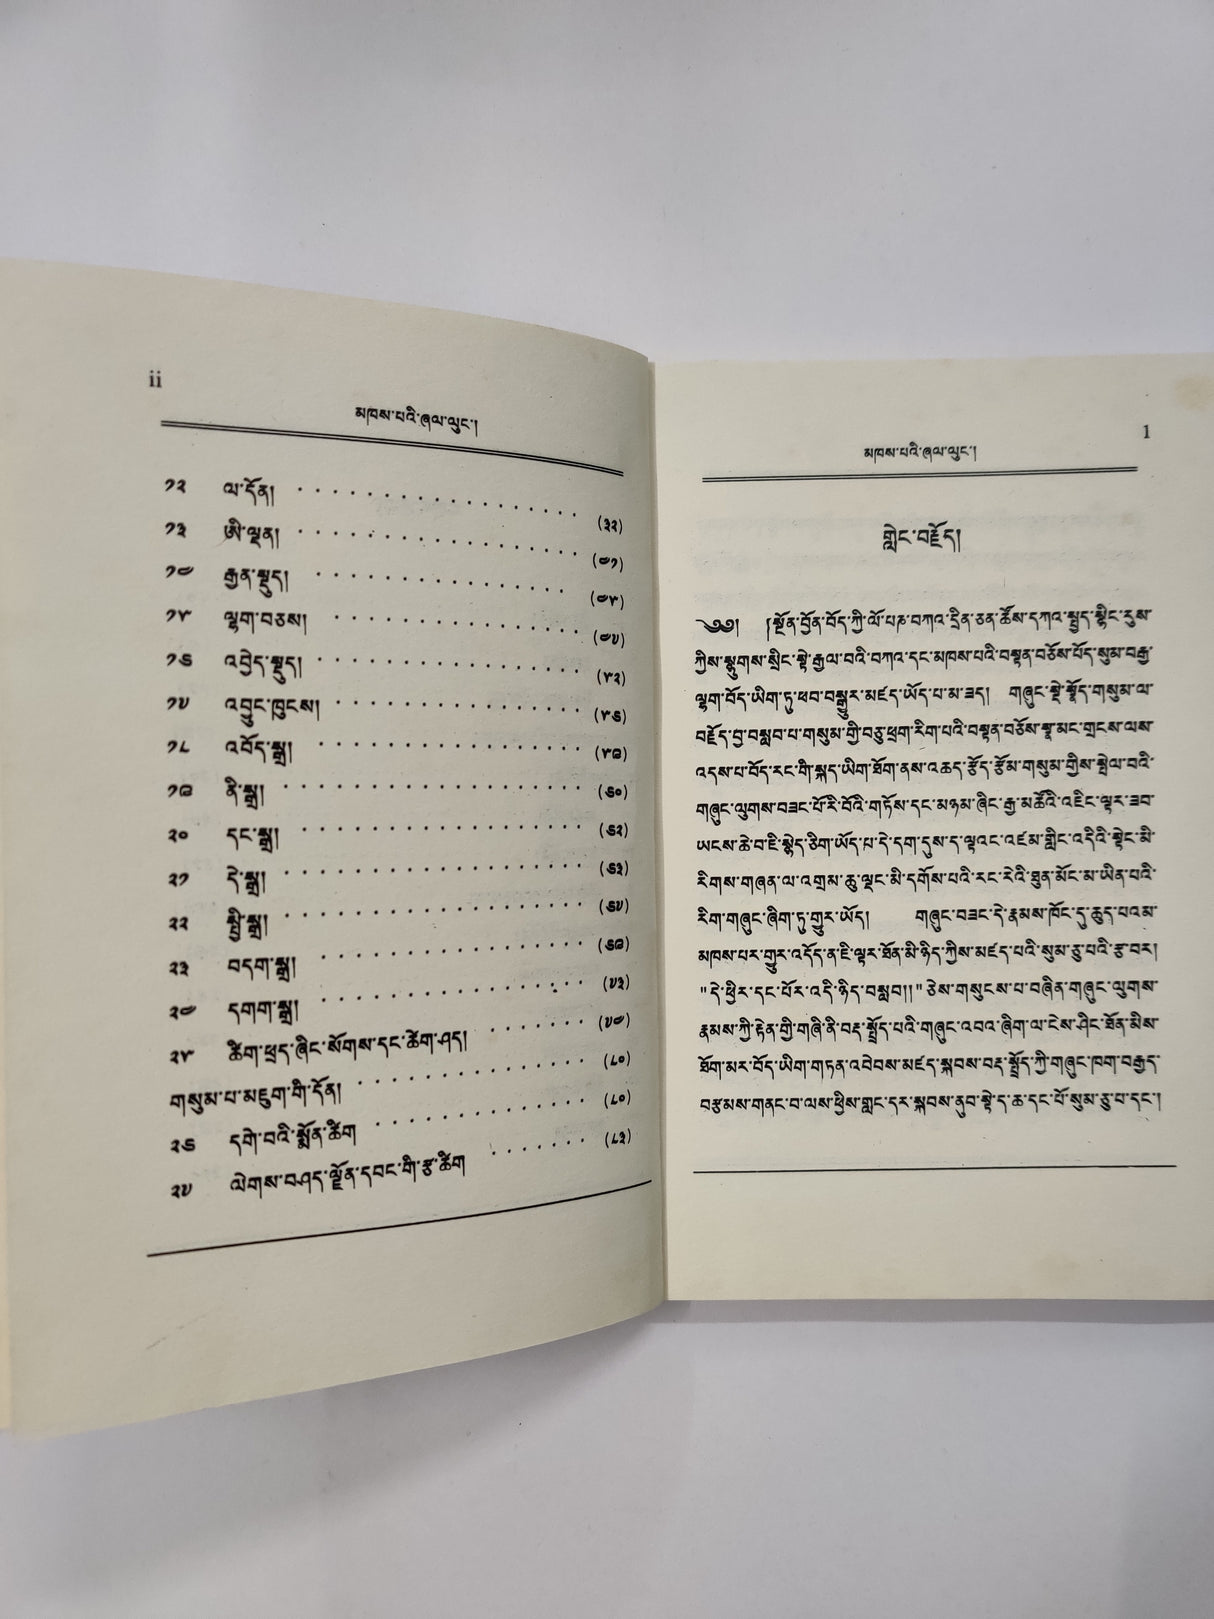 ii
མཁས་པའི་ཞལ་ལུང་།
༡༢ ལ་དོན། (༣༢)
༡༣ ཨི་ལྡན། (༤༡)
༡༤ རྒྱན་སྡུད། (༤༥)
༡༥ ལྷག་བཅས། (༤༧)
༡༦ འབྱེད་སྡུད། (༥༢)
༡༧ འབྱུང་ཁུངས། (༥༦)
༡༨ འབོད་སྒྲ། (༥༩)
༡༩ ནི་སྒྲ། (༦༠)
༢༠ དང་སྒྲ། (༦༢)
༢༡ དེ་སྒྲ། (༦༣)
༢༢ སྤྱི་སྒྲ། (༦༧)
༢༣ བདག་སྒྲ། (༦༩)
༢༤ དགག་སྒྲ། (༧༣)
༢༥ ཚིག་ཕྲད་ཞིང་སོགས་དང་ཚེག་ཤད། (༧༤)
གསུམ་པ་མཇུག་གི་དོན། (༨༠)
༢༦ དགེ་བའི་སྨོན་ཚིག (༨༠)
༢༧ ལེགས་བཤད་ལྗོན་དབང་གི་རྩ་ཚིག (༨༣)
1
མཁས་པའི་ཞལ་ལུང་།
གླེང་བརྗོད།
༄༅། །སྔོན་བྱོན་བོད་ཀྱི་ལོ་པཎ་བཀའ་དྲིན་ཅན་ཚོས་དཀའ་སྤྱད་སྙིང་རུས་
ཀྱིས་སྡུགས་སྲིང་སྟེ་རྒྱལ་བའི་བཀའ་དང་མཁས་པའི་བསྟན་བཅོས་པོད་སུམ་བརྒྱ་
ལྷག་བོད་ཡིག་ཏུ་ཕབ་བསྒྱུར་མཛད་ཡོད་པ་མ་ཟད། གཞུང་སྡེ་སྣོད་གསུམ་ལ་
བརྗོད་བྱ་བསླབ་པ་གསུམ་གྱི་བཅུ་ཕྲག་རིག་པའི་བསྟན་བཅོས་སྣ་མང་གྲངས་ལས་
འདས་པ་བོད་རང་གི་སྐད་ཡིག་ཐོག་ནས་འཆད་རྩོད་རྩོམ་གསུམ་གྱིས་སྤེལ་བའི་
གཞུང་ལུགས་བཟང་པོ་རི་བོའི་གཏོས་དང་མཉམ་ཞིང་རྒྱ་མཚོའི་འཇིང་ལྟར་ཟབ་
ཡངས་ཆེ་བ་ཇི་སྙེད་ཅིག་ཡོད་པ་དེ་དག་དུས་ད་ལྟའང་འཛམ་གླིང་འདིའི་སྟེང་མི་
རིགས་གཞན་ལ་འགྲམ་ཆུ་ལྡང་མི་དགོས་པའི་རང་རེའི་ཐུན་མོང་མ་ཡིན་པའི་
རིག་གཞུང་ཞིག་ཏུ་གྱུར་ཡོད། གཞུང་བཟང་དེ་རྣམས་ཁོང་དུ་ཆུད་པའམ་
མཁས་པར་གྱུར་འདོད་ན་ཇི་ལྟར་ཐོན་མི་ཉིད་ཀྱིས་མཛད་པའི་སུམ་ཅུ་པའི་རྩ་བར།
"དེ་ཕྱིར་དང་པོར་འདི་ཉིད་བསླབ།།"ཅེས་གསུངས་པ་བཞིན་གཞུང་ལུགས་
རྣམས་ཀྱི་རྟེན་གྱི་གཞི་ནི་བརྡ་སྤྲོད་པའི་གཞུང་འབའ་ཞིག་ལ་ངེས་ཤིང་ཐོན་མིས་
ཐོག་མར་བོད་ཡིག་གཏན་འབེབས་མཛད་སྐབས་བརྡ་སྤྲོད་ཀྱི་གཞུང་ཁག་བརྒྱད་
བརྩམས་གནང་བ་ལས་ཕྱིས་གླང་དར་སྐབས་ནུབ་སྟེ་ད་ཆ་དང་པོ་སུམ་ཅུ་པ་དང་།